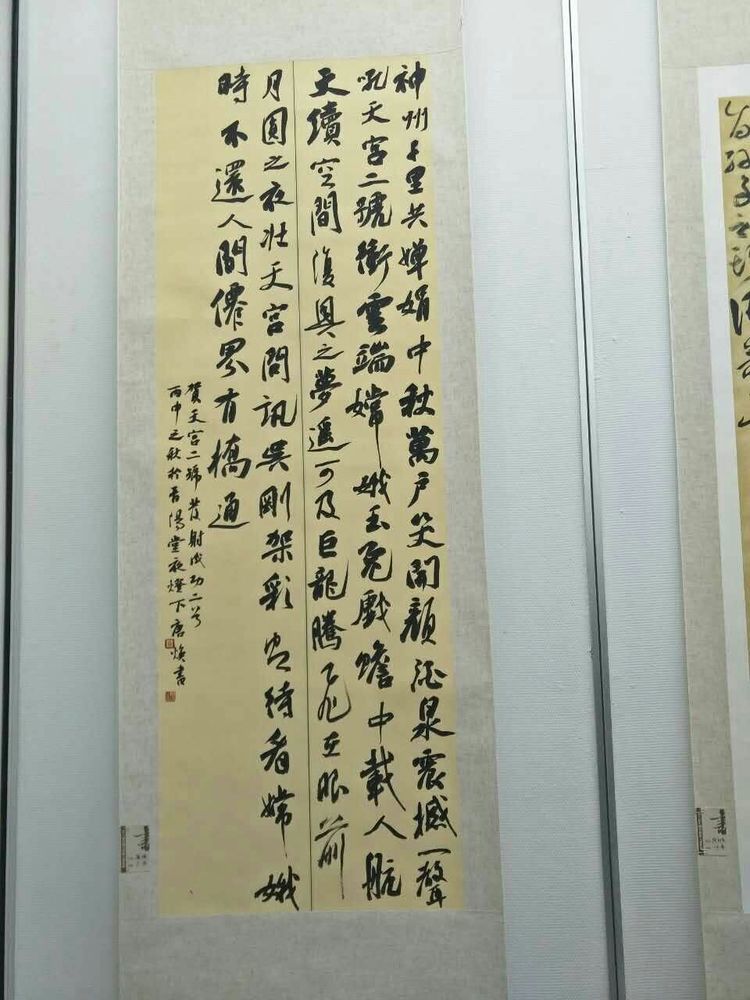 神州千里共嬋娟中秋萬户笑開顏酒泉震撼一聲
吼天宮二號衝雲端嫦娥玉兔戲蟾中載人航
天續空間復興之夢遥可及巨龍騰飛在眼前
月圓之夜壯天宮問訊吳剛架彩虹待看嫦娥
時不還人間僊界有橋通
賀天宮二號發射成功二首
丙申之秋於晋陽堂夜燈下唐煥書